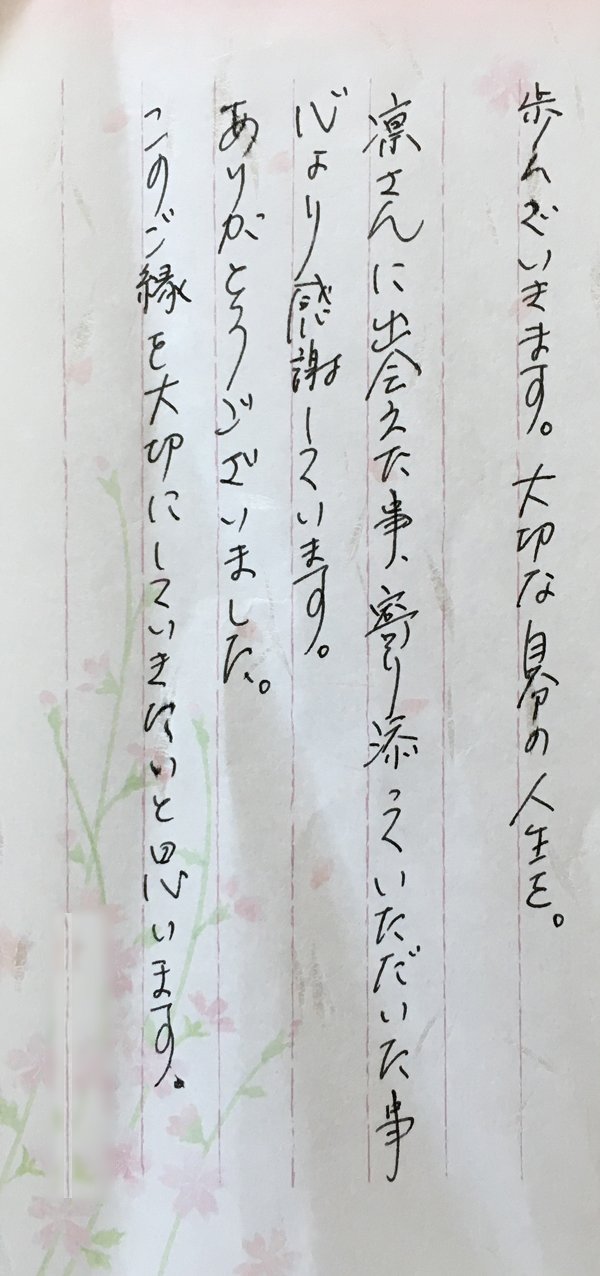 歩んでいきます。大切な自分の人生を。
凛さんに出会えた事、寄り添っていただいた事
心より感謝しています。
ありがとうございました。
このご縁を大切にしていきたいと思います。